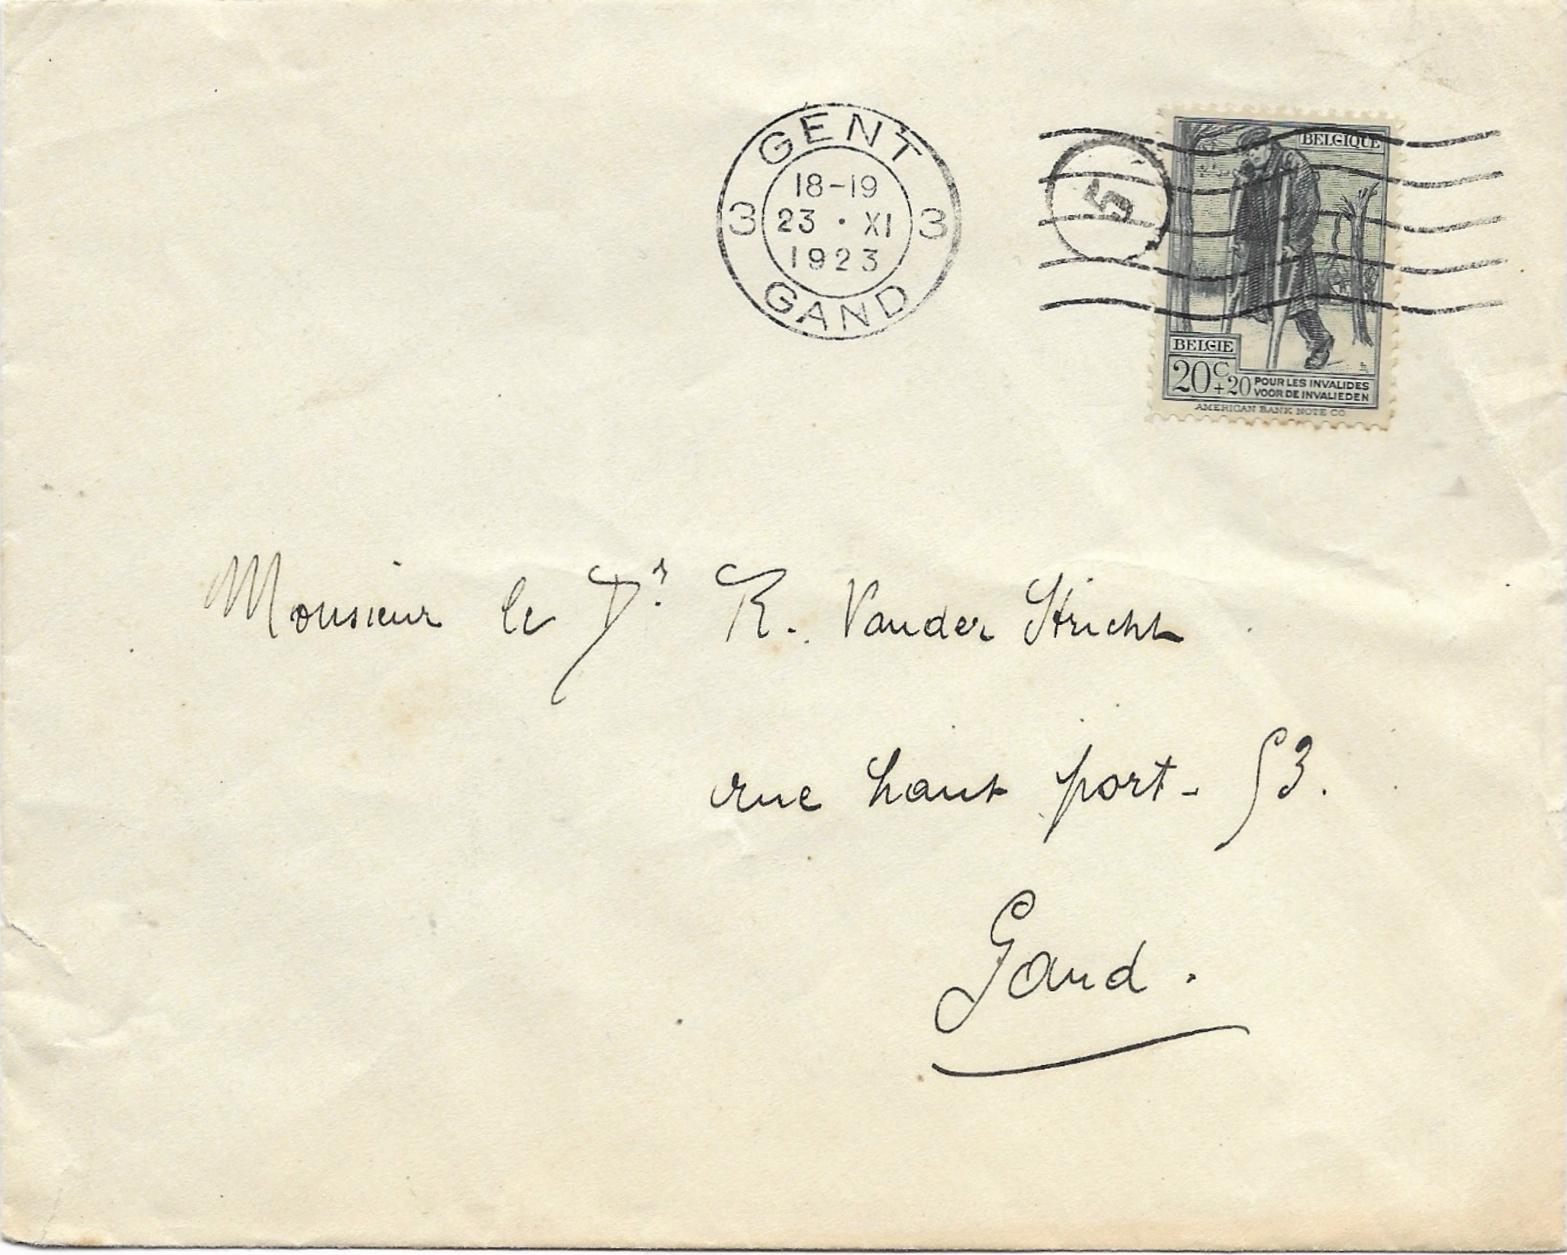 GENT
18-19
3 23 · XI 3
1923
GAND
5
BELGIQUE
BELGIE
20c+20 POUR LES INVALIDES
VOOR DE INVALIEDEN
AMERICAN BANK NOTE CO.
Monsieur le Dr. R. Vander Stricht
rue haut port - 53.
Gand.